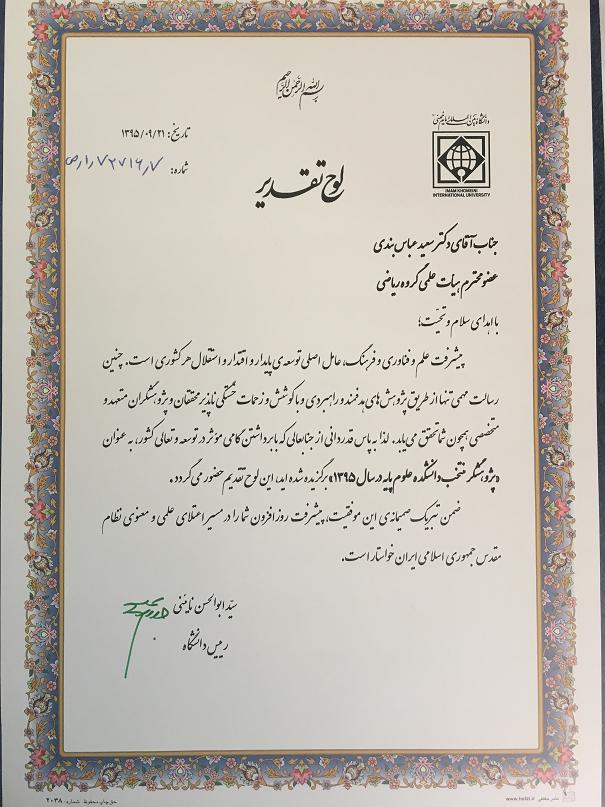 بسم الله الرحمن الرحیم
دانشگاه بین المللی امام خمینی
IMAM KHOMEINI
INTERNATIONAL UNIVERSITY
تاریخ: ۱۳۹۵/۰۹/۲۱
شماره:
لوح تقدیر
جناب آقای دکتر سعید عباس بندی
عضو محترم هیات علمی گروه ریاضی
با اهدای سلام و تحیّت؛
پیشرفت علم و فناوری و فرهنگ، عامل اصلی توسعه‌ی پایدار و اقتدار و استقلال هر کشوری است. چنین
رسالت مهمی تنها از طریق پژوهش‌های هدفمند و راهبردی و با کوشش و زحمات خستگی ناپذیر محققان و پژوهشگران متعهد و
متخصصی همچون شما تحقق می‌یابد. لذا به پاس قدردانی از جنابعالی که با برداشتن گامی مؤثر در توسعه و تعالی کشور، به عنوان
«پژوهشگر منتخب دانشکده علوم پایه در سال ۱۳۹۵» برگزیده شده اید، این لوح تقدیم حضور می گردد.
ضمن تبریک صمیمانه‌ی این موفقیت، پیشرفت روزافزون شما را در مسیر اعتلای علمی و معنوی نظام
مقدس جمهوری اسلامی ایران خواستار است.
سیّد ابوالحسن نایینی
رییس دانشگاه
حق چاپ محفوظ شماره ۲۰۳۸